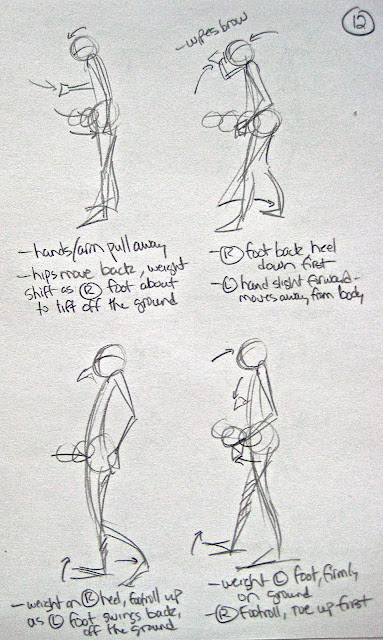 12
-wipes brow
-hands/arm pull away
-hips move back, weight
shift as R foot about
to lift off the ground
-R foot back, heel
down first
-L hand slight forward-
moves away from body
-weight on R heel, footroll up
as L foot swings back,
off the ground
-weight L foot, firmly
on ground
-R footroll, toe up first